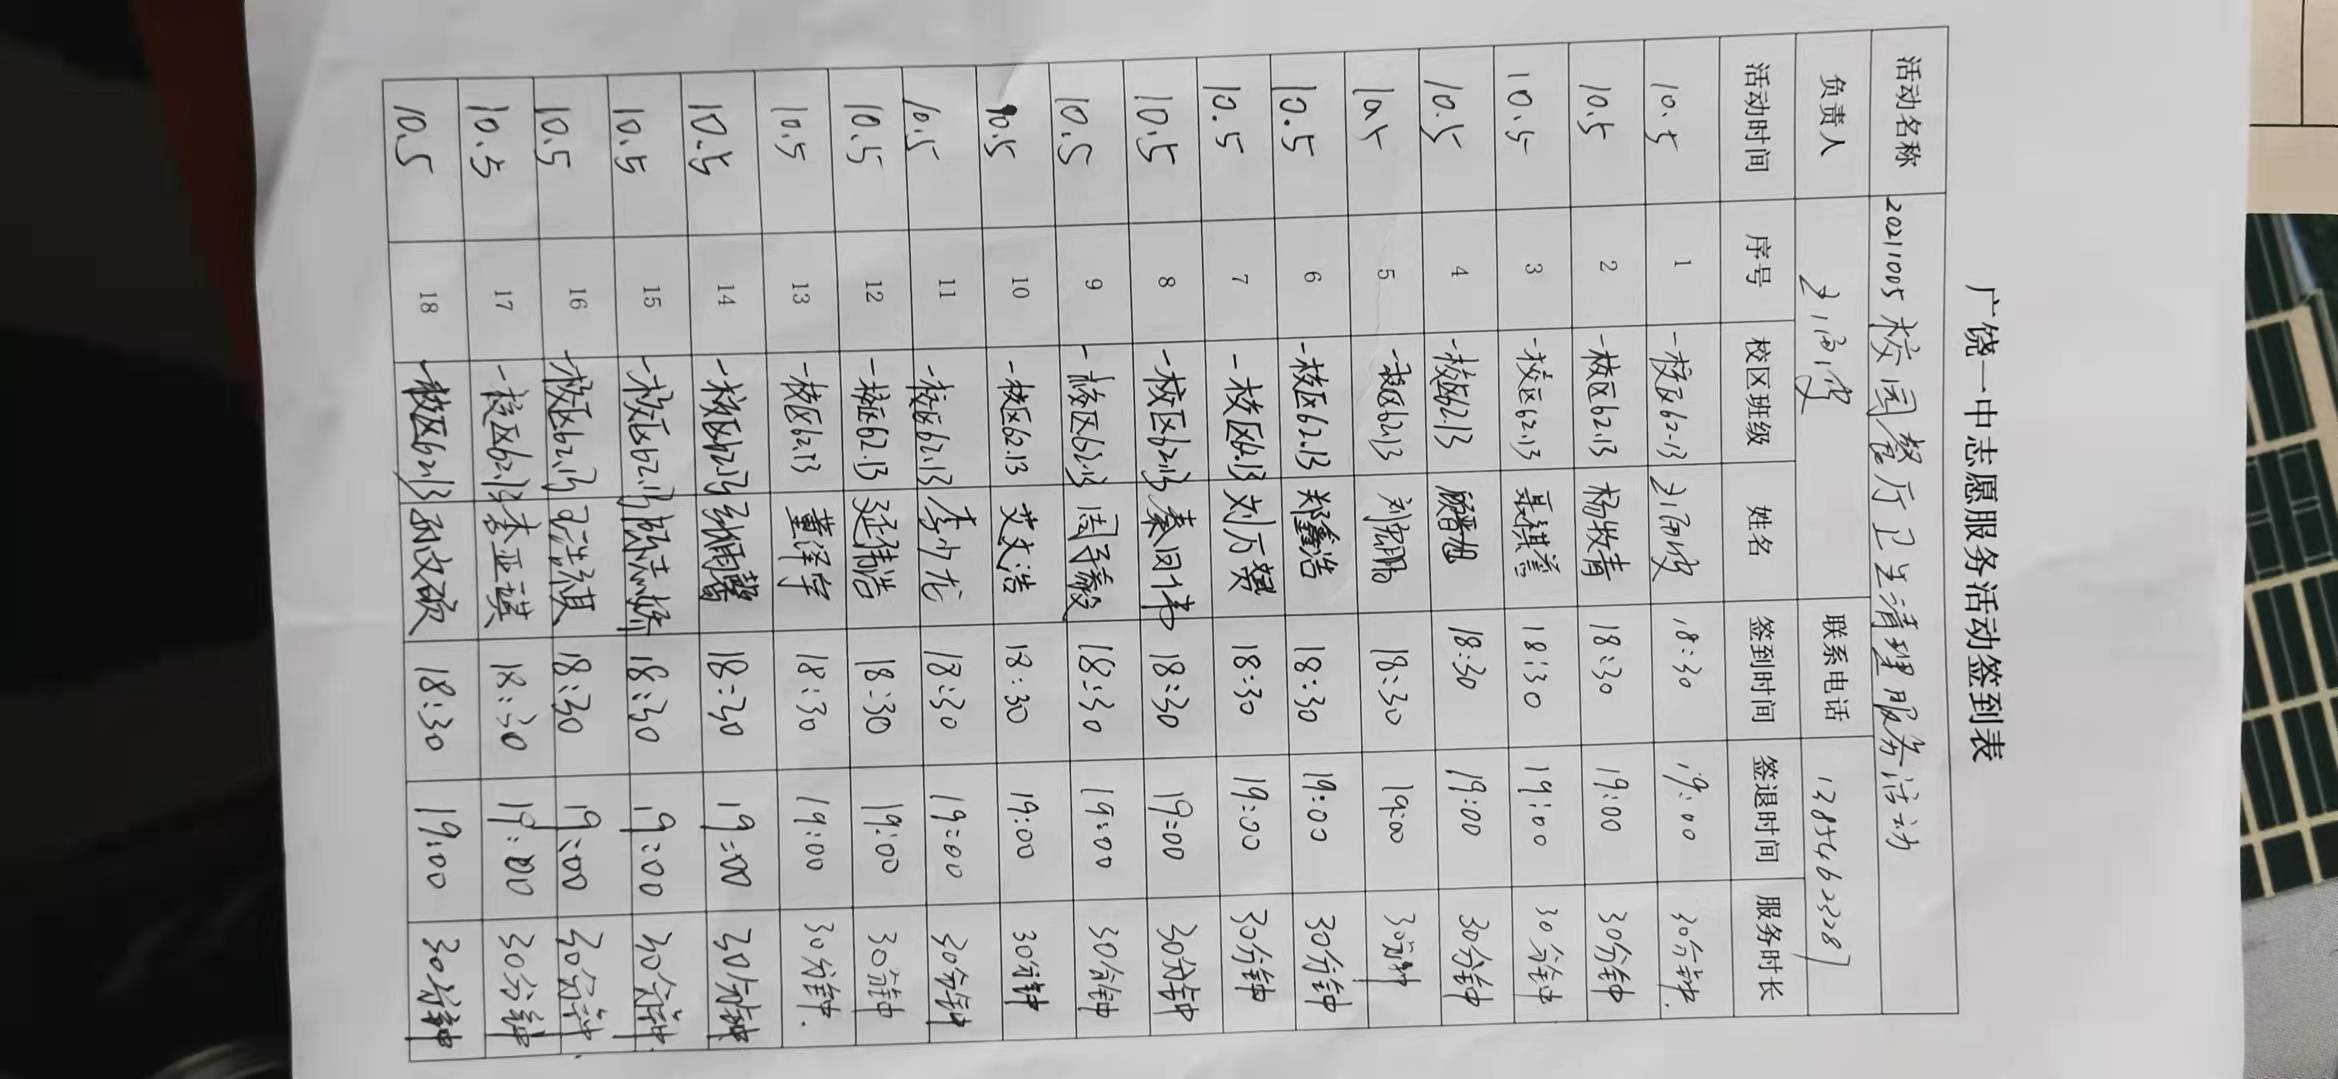 广饶一中志愿服务活动签到表
活动名称 20211005校园餐厅卫生清理服务活动
负责人 联系电话 13854623287
活动时间 序号 校区班级 姓名 签到时间 签退时间 服务时长
10.5 1 一校区62.13 18:30 19:00 30分钟.
10.5 2 一校区62.13 杨牧青 18:30 19:00 30分钟
10.5 3 一校区62.13 聂祺善 18:30 19:00 30分钟
10.5 4 一校区62.13 顾晋旭 18:30 19:00 30分钟
10.5 5 一校区62.13 刘宏鹏 18:30 19:00 30分钟
10.5 6 一校区62.13 郑鑫浩 18:30 19:00 30分钟
10.5 7 一校区62.13 刘万贺 18:30 19:00 30分钟
10.5 8 一校区62.13 秦同伟 18:30 19:00 30分钟
10.5 9 一校区62.13 周子毅 18:30 19:00 30分钟
10.5 10 一校区62.13 艾文浩 18:30 19:00 30分钟
10.5 11 一校区62.13 李少龙 18:30 19:00 30分钟
10.5 12 一校区62.13 延伟浩 18:30 19:00 30分钟
10.5 13 一校区62.13 董泽宇 18:30 19:00 30分钟.
10.5 14 一校区62.13 18:30 19:00 30分钟
10.5 15 一校区62.13 18:30 19:00 30分钟.
10.5 16 一校区62.13 王浩淇 18:30 19:00 30分钟.
10.5 17 一校区62.13 李亚琪 18:30 19:00 30分钟
10.5 18 一校区62.13 孙文硕 18:30 19:00 30分钟